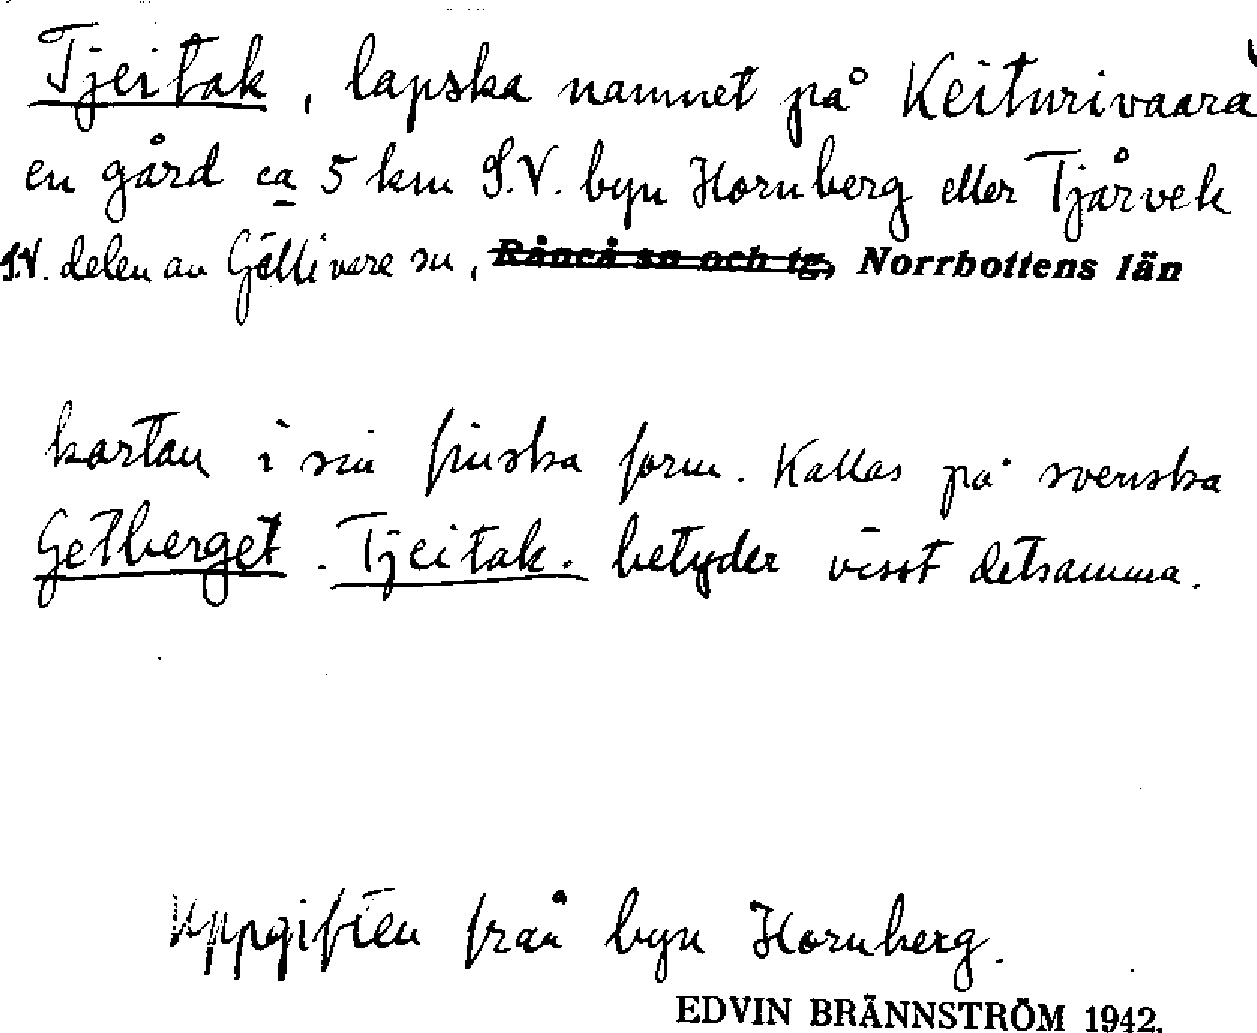 Tjeitak, lapska namnet på Keiturivaara
en gård ca 5 km S.V. byn Hornberg eller Tjårvek
S.V. delen av Gällivare sn, Råneå sn och tg, Norrbottens län
kartan i sin finska form. Kallas på svenska
Getberget. Tjeitak. betyder visst detsamma.
Uppgiften från byn Hornberg.
EDVIN BRÄNNSTRÖM 1942.